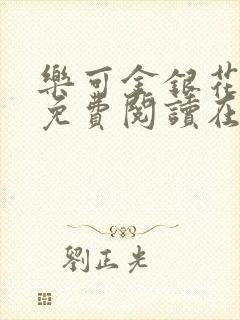 樂可金銀花
免費閱讀在
劉正光